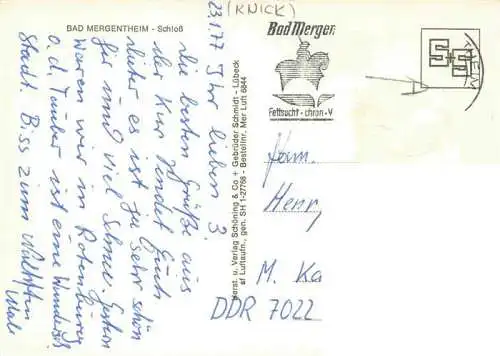 (KNICK)
BAD MERGENTHEIM - Schloß
23.1.77
Ihr lieben 3.
die besten Grüße aus
der Kur sendet Euch
Dieter es ist ja sehr schön
hir und viel Schnee. Gestern
waren wir in Rotenburg
o. d. Tauber ist eine Wunderschö
Stadt. Biss zum
Male
Herst. u. Verlag Schöning & Co + Gebrüder Schmidt - Lübeck
sf Luftaufn., gen. SH 1-27768 - Bestellnr. Mer Luft 6844
Bad Mergen
Fettsucht · chron. V
Fam.
Henry
M. Ka
DDR 7022